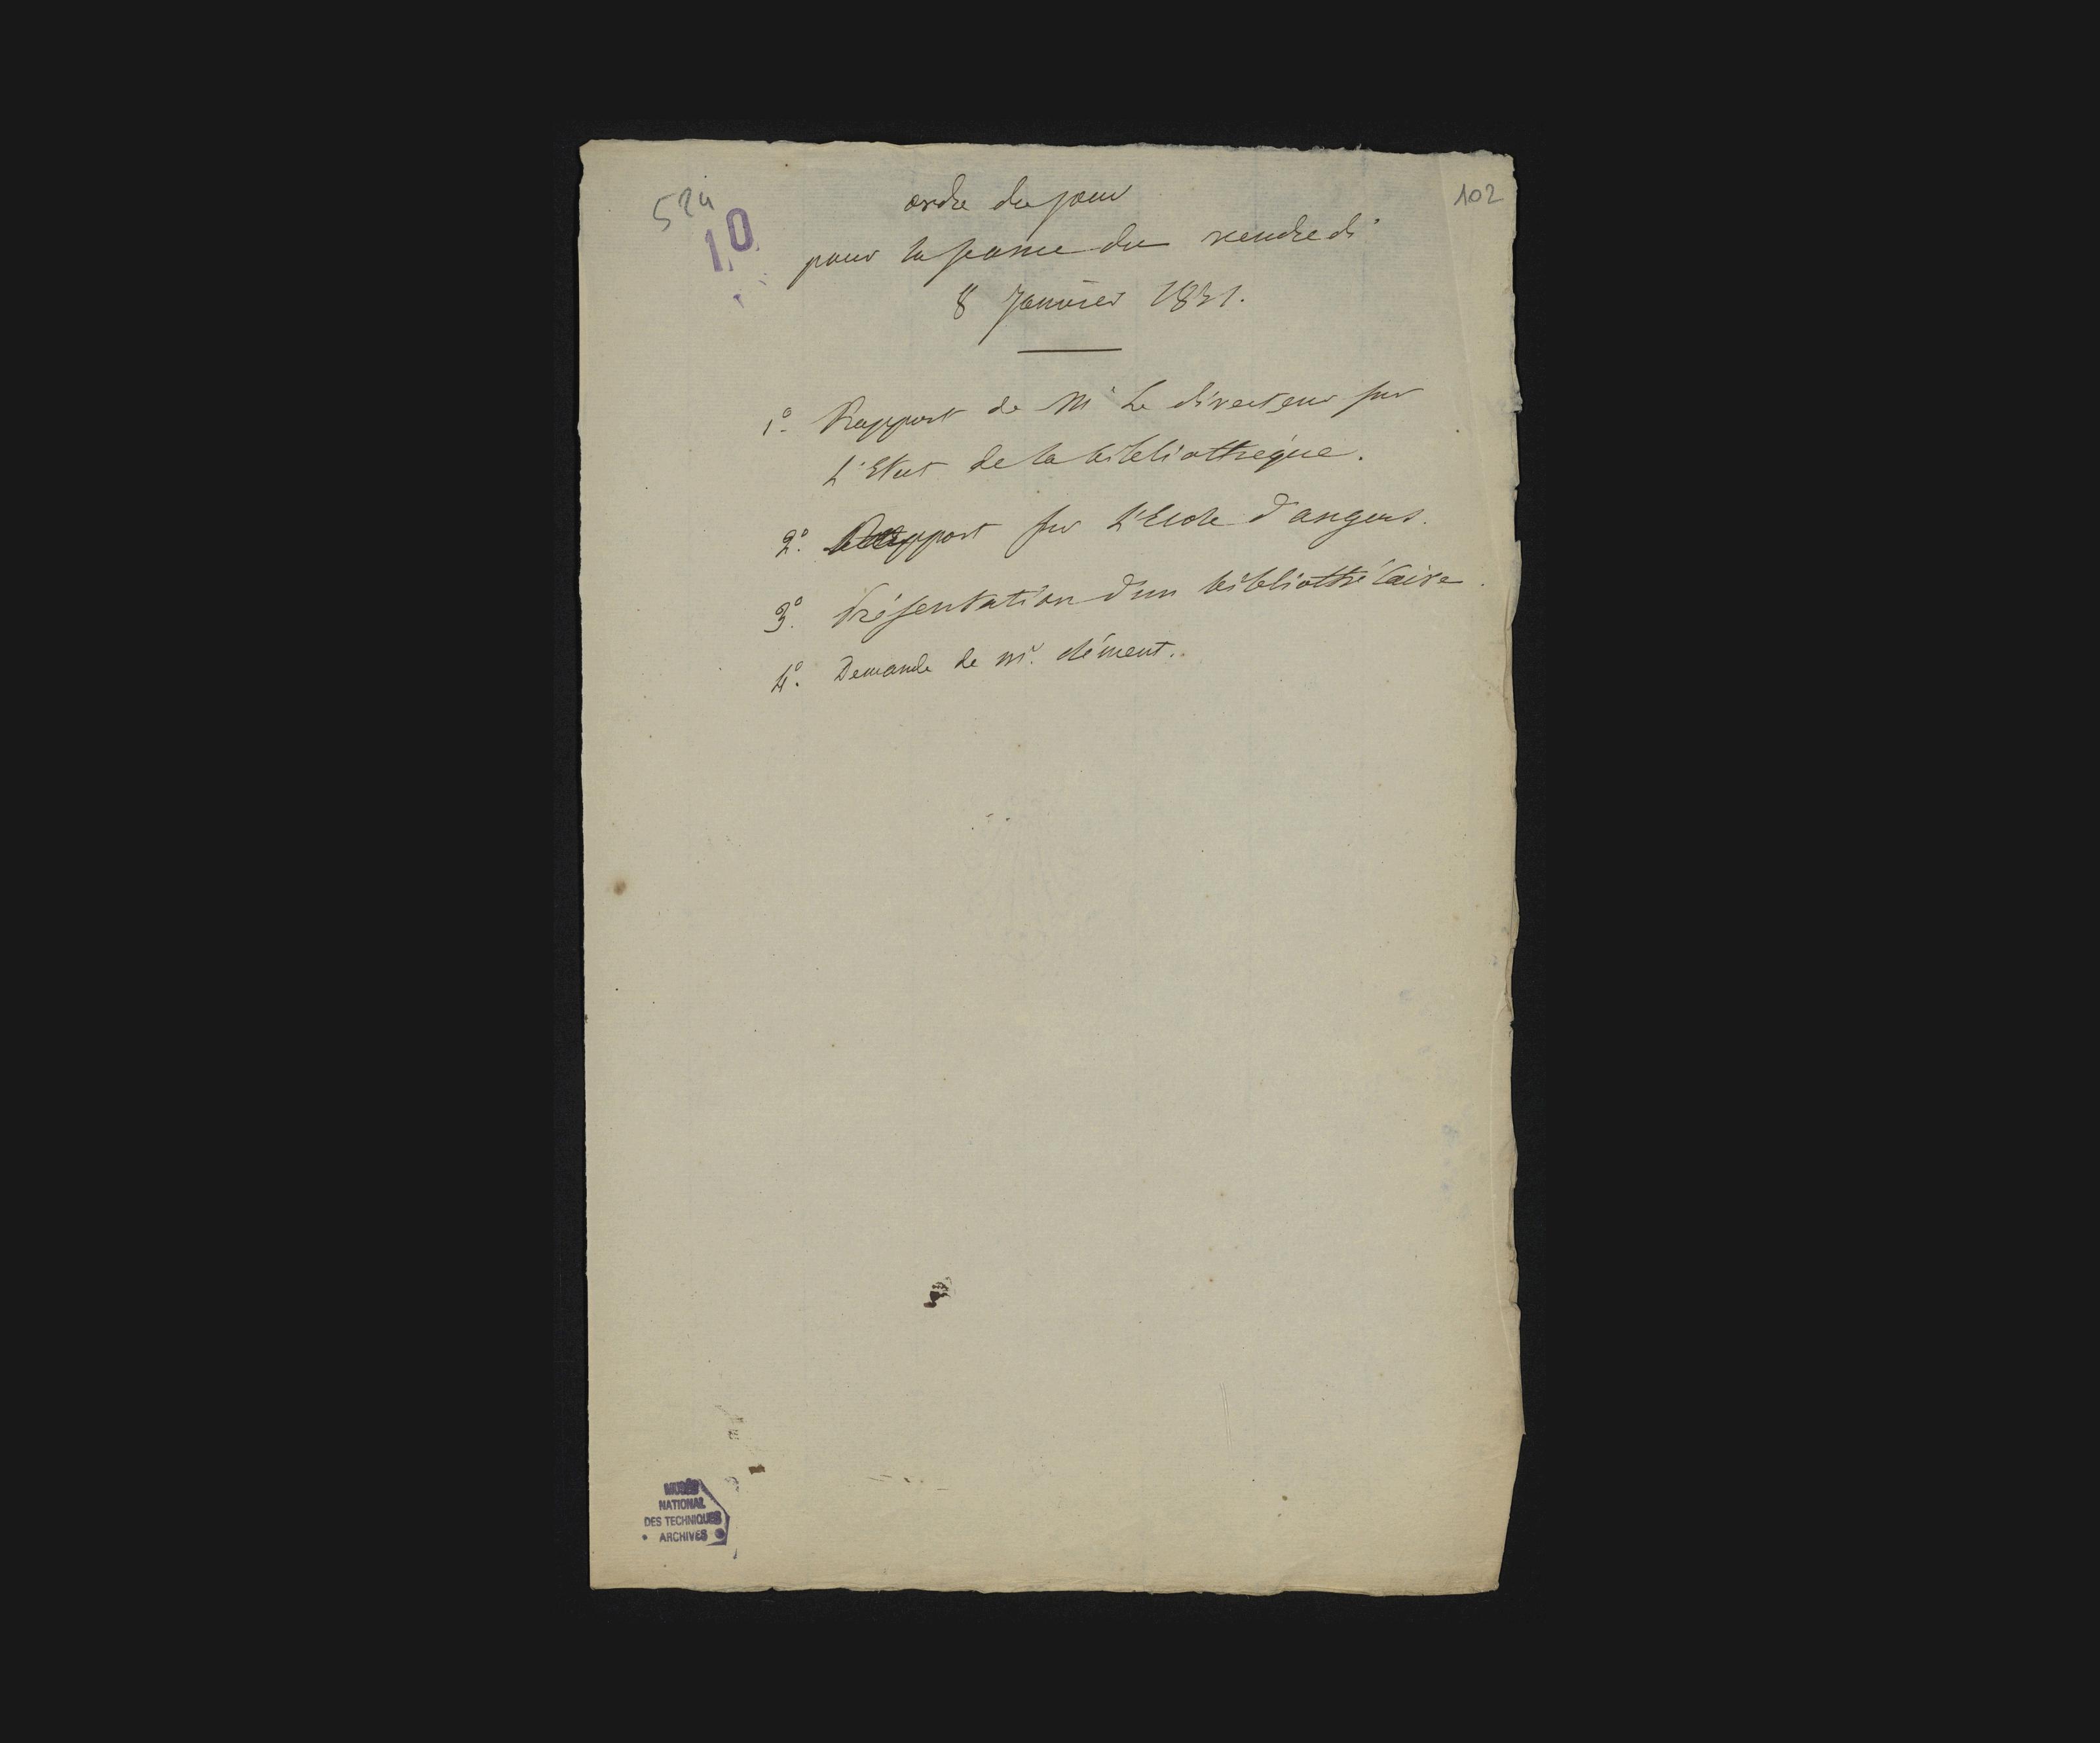 524
10
102
ordre du jour
pour la seance du vendredi
8 Janvier 1831.
1º. Rapport de Mr Le directeur sur
L'Etat de la bibliothéque.
2º. Rapport sur L'Ecole d'angers.
3º. Présentation d'un bibliothécaire.
4º. Demande de mr. clément.
MUSÉE
NATIONAL
DES TECHNIQUES
ARCHIVES